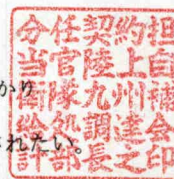 分任契約担
当官陸上自
衛隊九州補
給処調達会
計部長之印
かり
されたい。